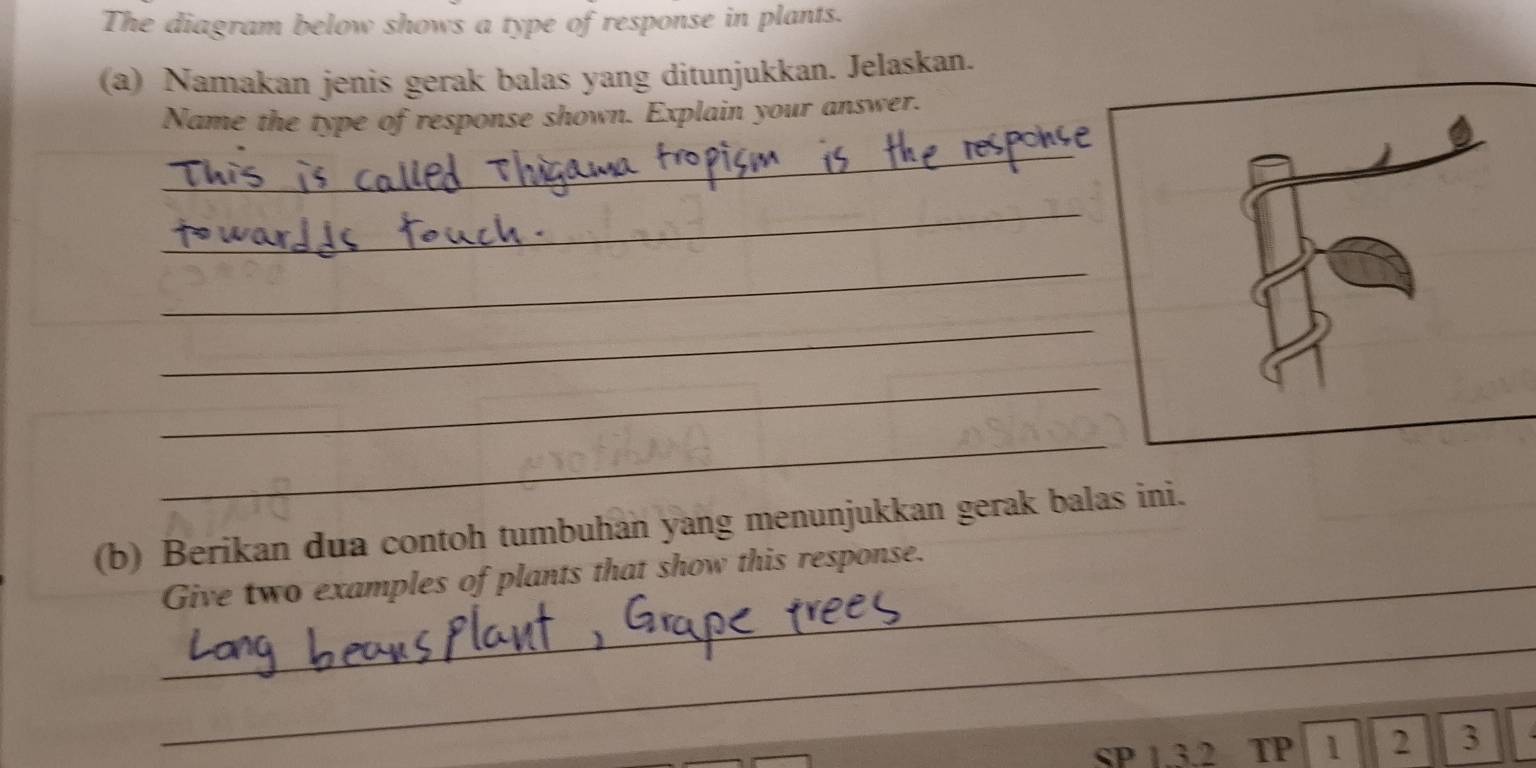 The diagram below shows a type of response in plants.
(a) Namakan jenis gerak balas yang ditunjukkan. Jelaskan.
Name the type of response shown. Explain your answer.
This is called Thigama tropism is the response
towardds touch.
(b) Berikan dua contoh tumbuhan yang menunjukkan gerak balas ini.
Give two examples of plants that show this response.
Long beans plant, Grape trees
SP 1.3.2 TP 1 2 3